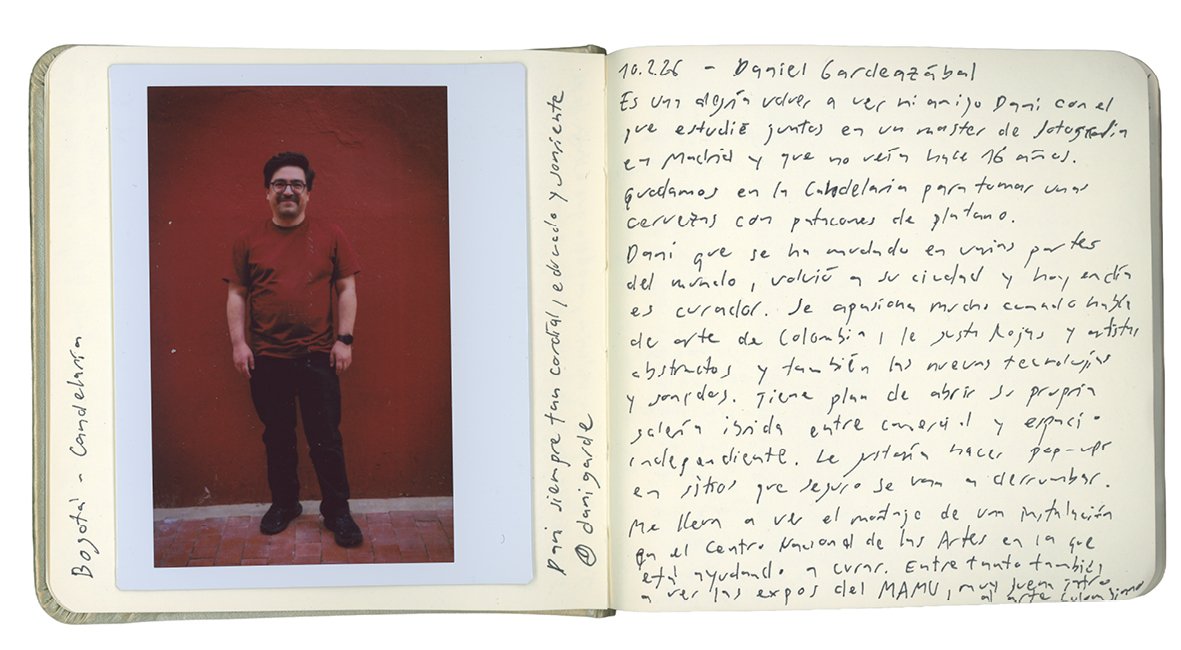 Bogotá - Candelaria
Dani siempre tan cordial, educado y sonriente
@danigarde
10.2.26 - Daniel Gardeazábal
Es una alegría volver a ver mi amigo Dani con el
que estudié juntos en un master de fotografía
en Madrid y que no veía hace 16 años.
Quedamos en la Candelaria para tomar unas
cervezas con patacones de platano.
Dani que se ha mudado en varias partes
del mundo, volvió a su ciudad y hoy en día
es curador. Se apasiona mucho cuando habla
de arte de Colombia, le gusta Rojas y artistas
abstractos y también las nuevas tecnologías
y sonidos. Tiene plan de abrir su propria
galería ibrida entre comercial y espacio
independiente. Le gustaría hacer pop-ups
en sitios que seguro se van a derrumbar.
Me lleva a ver el montaje de una instalación
en el Centro Nacional de las Artes en la que
está ayudando a curar. Entre tanto también
a ver las expos del MAMU, muy buena intro
al arte colombiano